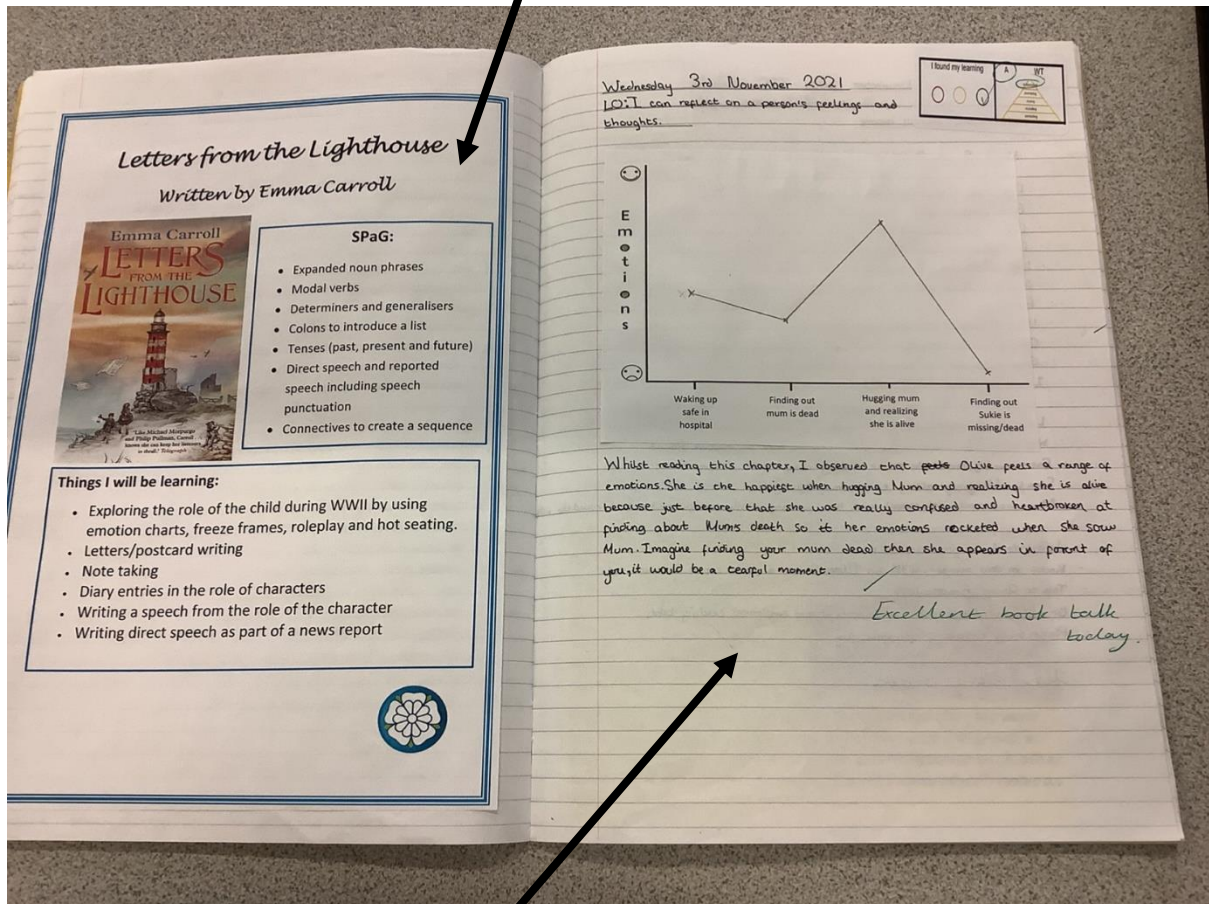 Letters from the Lighthouse
Written by Emma Carroll
Emma Carroll
LETTERS
FROM THE
LIGHTHOUSE
"Like Michael Morpurgo
and Philip Pullman, Carroll
knows she can keep her readers
in thrall." Telegraph
SPaG:
• Expanded noun phrases
• Modal verbs
• Determiners and generalisers
• Colons to introduce a list
• Tenses (past, present and future)
• Direct speech and reported
speech including speech
punctuation
• Connectives to create a sequence
Things I will be learning:
• Exploring the role of the child during WWII by using
emotion charts, freeze frames, roleplay and hot seating.
• Letters/postcard writing
• Note taking
• Diary entries in the role of characters
• Writing a speech from the role of the character
• Writing direct speech as part of a news report
Wednesday 3rd November 2021
LO:I can reflect on a person's feelings and
thoughts.
I found my learning
A
WT
Emotions
Waking up
safe in
hospital
Finding out
mum is dead
Hugging mum
and realizing
she is alive
Finding out
Sukie is
missing/dead
Whilst reading this chapter, I observed that feels Olive feels a range of
emotions. She is the happiest when hugging Mum and realizing she is alive
because just before that she was really confused and heartbroken at
finding about Mum's death so it her emotions rocketed when she saw
Mum. Imagine finding your mum dead then she appears in foront of
you, it would be a tearful moment.
Excellent book talk
today.